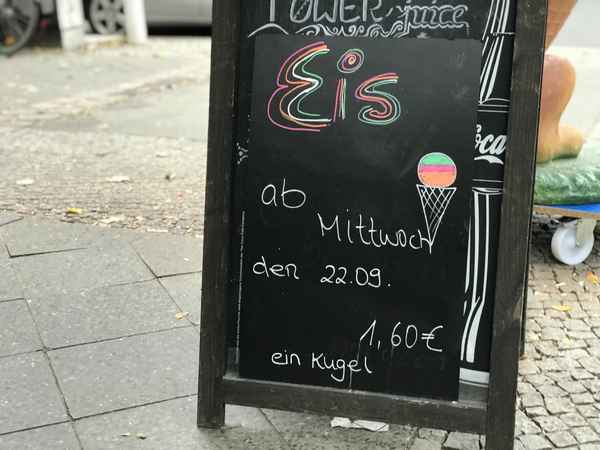 POWER juice
Eis
ab
Mittwoch
den 22.09.
1,60€
ein Kugel
oca